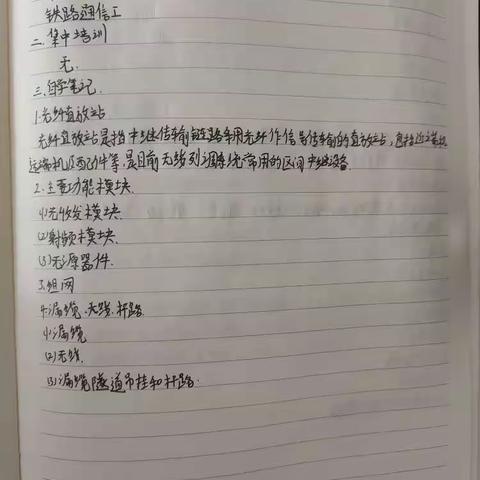 铁路通信工
二.集中培训
无.
三.自学笔记
1.光纤直放站
光纤直放站是指中继传输链路采用光纤作信号传输的直放站,
远端机 等.是目前无线列调系统常用的区间中继设备.
2.主要功能模块.
(1)光收发模块.
(2)射频模块.
(3)无源器件.
3.组网
4.漏缆、天线、杆路.
(1)漏缆
(2)天线.
(3)漏缆隧道吊挂和杆路.